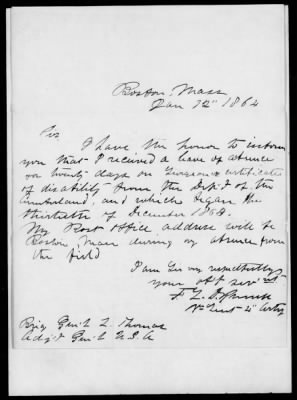 Boston, Mass
Jan 12" 1864
Sir
I have the honor to inform
you that I received a leave of absence
for twenty days on Surgeon's certificate
of disability from the Dept of the
Cumberland, and which began the
thirtieth of December 1863.
My Post office address will be
Boston, Mass during my absence from
the field
I am Sir very respectfully
your obt servt
Brig Gen'l L. Thomas
Adj't Gen'l U.S.A